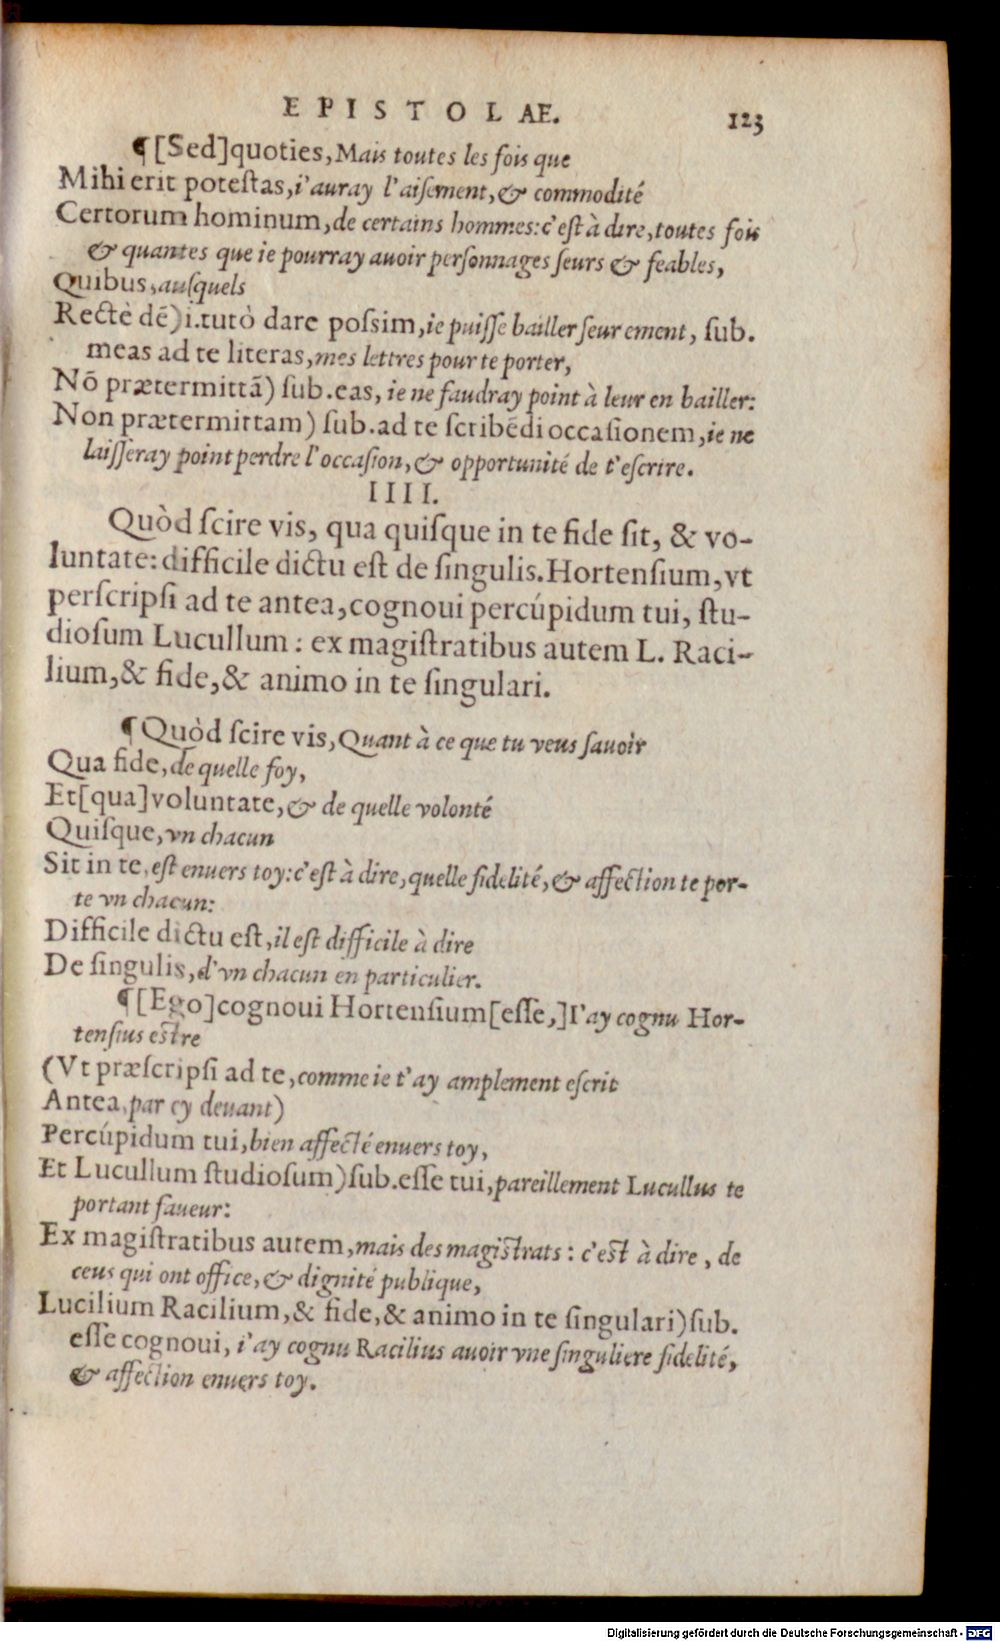 EPISTOLAE. 123
¶[Sed]quoties, Mais toutes les fois que
Mihi erit potestas, i'auray l'aisement, & commodité
Certorum hominum, de certains hommes: c'est à dire, toutes fois
& quantes que ie pourray auoir personnages seurs & feables,
Quibus, ausquels
Rectè dē) i. tutò dare possim, ie puisse bailler seurement, sub.
meas ad te literas, mes lettres pour te porter,
Nō prætermittā) sub. eas, ie ne faudray point à leur en bailler:
Non prætermittam) sub. ad te scribēdi occasionem, ie ne
laisseray point perdre l'occasion, & opportunité de t'escrire.
IIII.
Quòd scire vis, qua quisque in te fide sit, & vo-
luntate: difficile dictu est de singulis. Hortensium, vt
perscripsi ad te antea, cognoui percúpidum tui, stu-
diosum Lucullum: ex magistratibus autem L. Raci-
lium, & fide, & animo in te singulari.
¶Quòd scire vis, Quant à ce que tu veus sauoir
Qua fide, de quelle foy,
Et[qua]voluntate, & de quelle volonté
Quisque, vn chacun
Sit in te, est enuers toy: c'est à dire, quelle fidelité, & affection te por-
te vn chacun:
Difficile dictu est, il est difficile à dire
De singulis, d'vn chacun en particulier.
¶[Ego]cognoui Hortensium[esse,]I'ay cognu Hor-
tensius estre
(Vt præscripsi ad te, comme ie t'ay amplement escrit
Antea, par cy deuant)
Percúpidum tui, bien affecté enuers toy,
Et Lucullum studiosum) sub. esse tui, pareillement Lucullus te
portant faueur:
Ex magistratibus autem, mais des magistrats: c'est à dire, de
ceus qui ont office, & dignité publique,
Lucilium Racilium, & fide, & animo in te singulari) sub.
esse cognoui, i'ay cognu Racilius auoir vne singuliere fidelité,
& affection enuers toy.
Digitalisierung gefördert durch die Deutsche Forschungsgemeinschaft - DFG